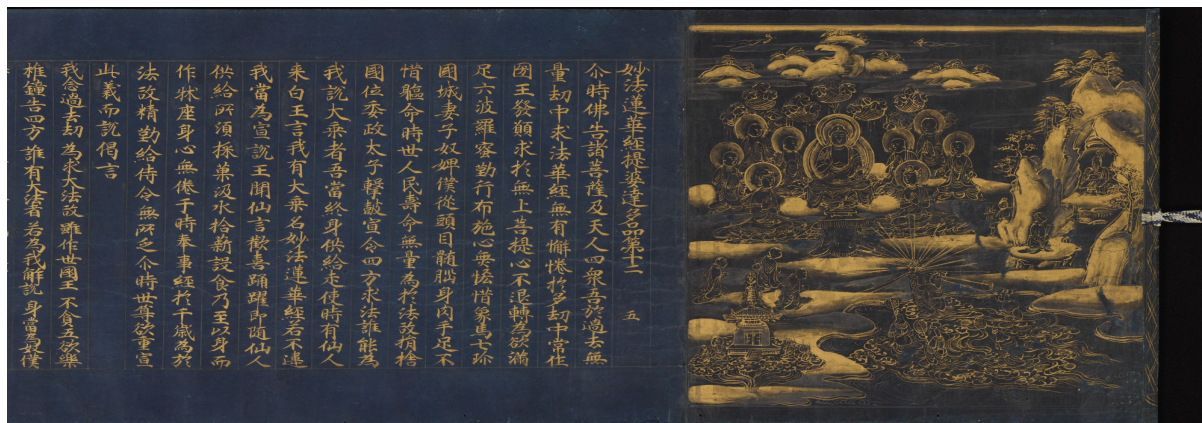 妙法蓮華經提婆達多品第十二 五
尒時佛告諸菩薩及天人四衆吾於過去無
量劫中求法華經無有懈惓於多劫中常作
國王發願求於無上菩提心不退轉為欲滿
足六波羅蜜勤行布施心無悋惜象馬七珎
國城妻子奴婢僕從頭目髓腦身肉手足不
惜軀命時世人民壽命無量為於法故捐捨
國位委政太子擊鼓宣令四方求法誰能為
我說大乘者吾當終身供給走使時有仙人
来白王言我有大乘名妙法蓮華經若不違
我當為宣說王聞仙言歡喜踊躍即随仙人
供給所須採菓汲水拾薪設食乃至以身而
作牀座身心無惓于時奉事經於千歲為於
法故精勤給侍令無所乏尒時世尊欲重宣
此義而說偈言
我念過去劫 為求大法故 雖作世國王 不貪五欲樂
椎鐘告四方 誰有大法者 若為我解說 身當為奴僕